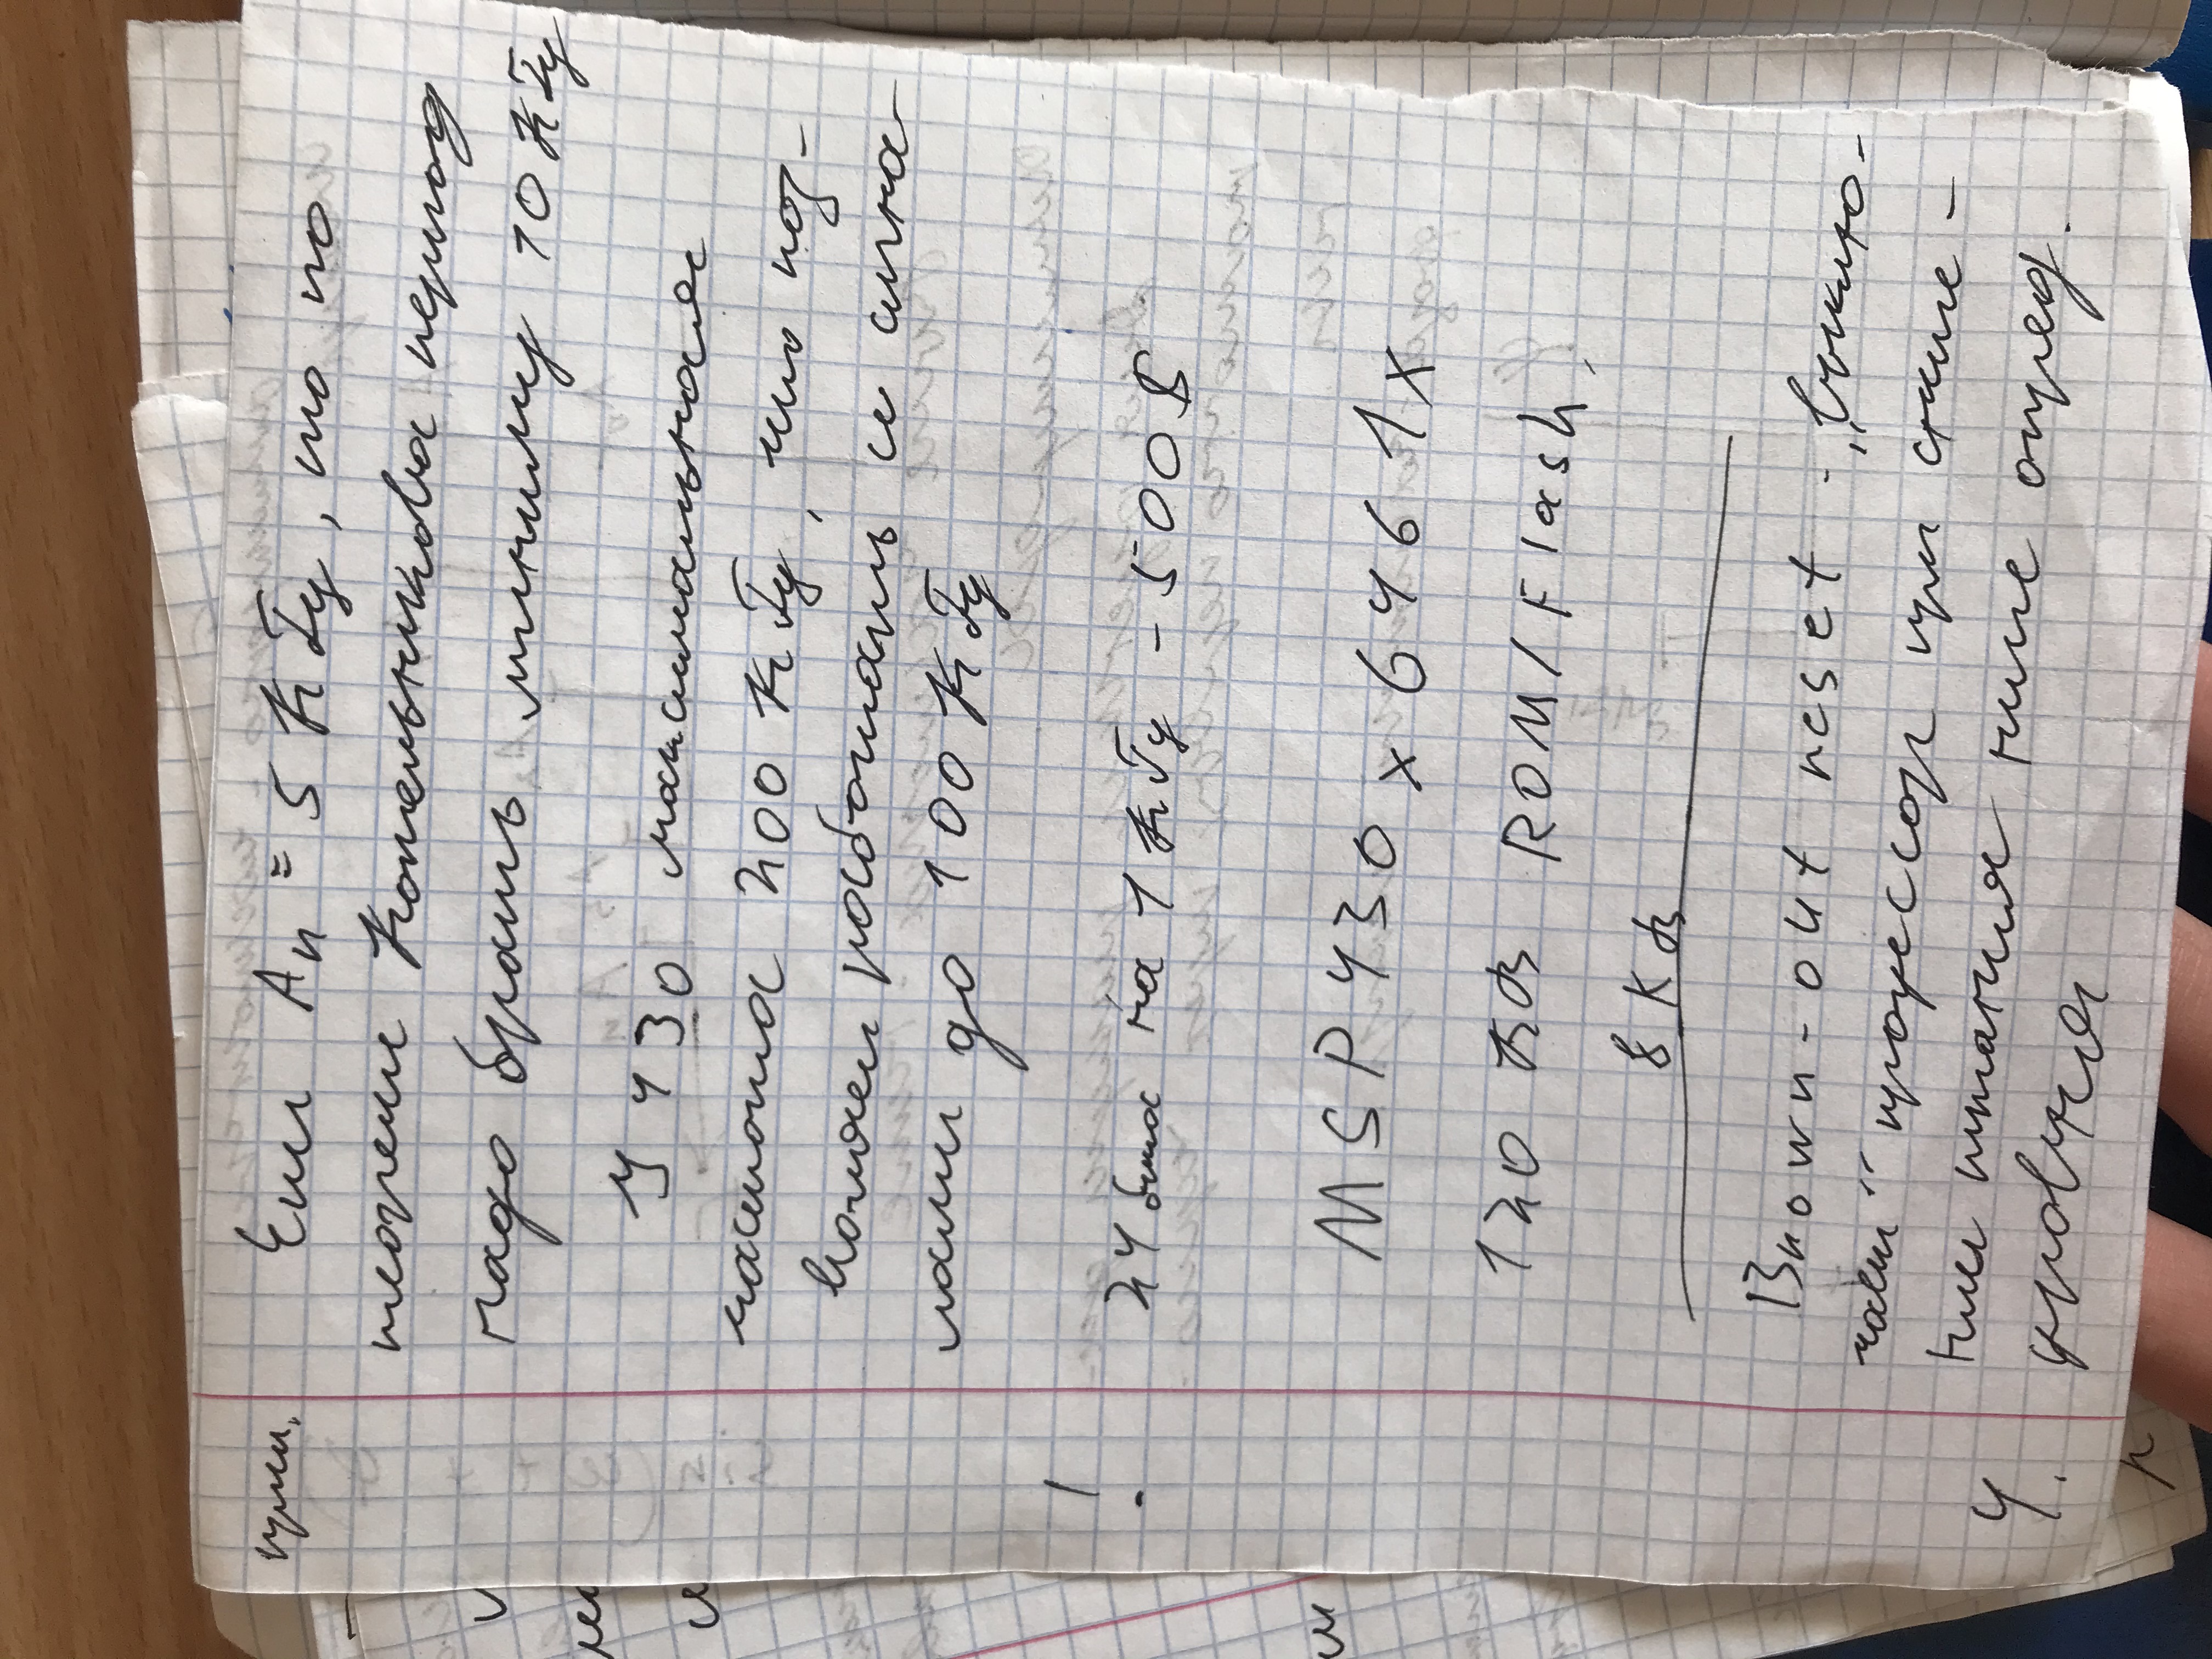 прим. Если An = 5 кГц, то по
теореме Котельникова период
надо брать минимум 10 кГц
У 430 максимальная
частота 200 кГц, что поз-
воляет работать с сигна-
лами до 100 кГц
! 24 бита на 1 кГц - 500$
MSP430x6461x
120 кВ ROM/Flash,
8 Kв
Brown-out reset - „выклю-
чает“ процессор при сниже-
нии питания ниже опред.
4. уровня